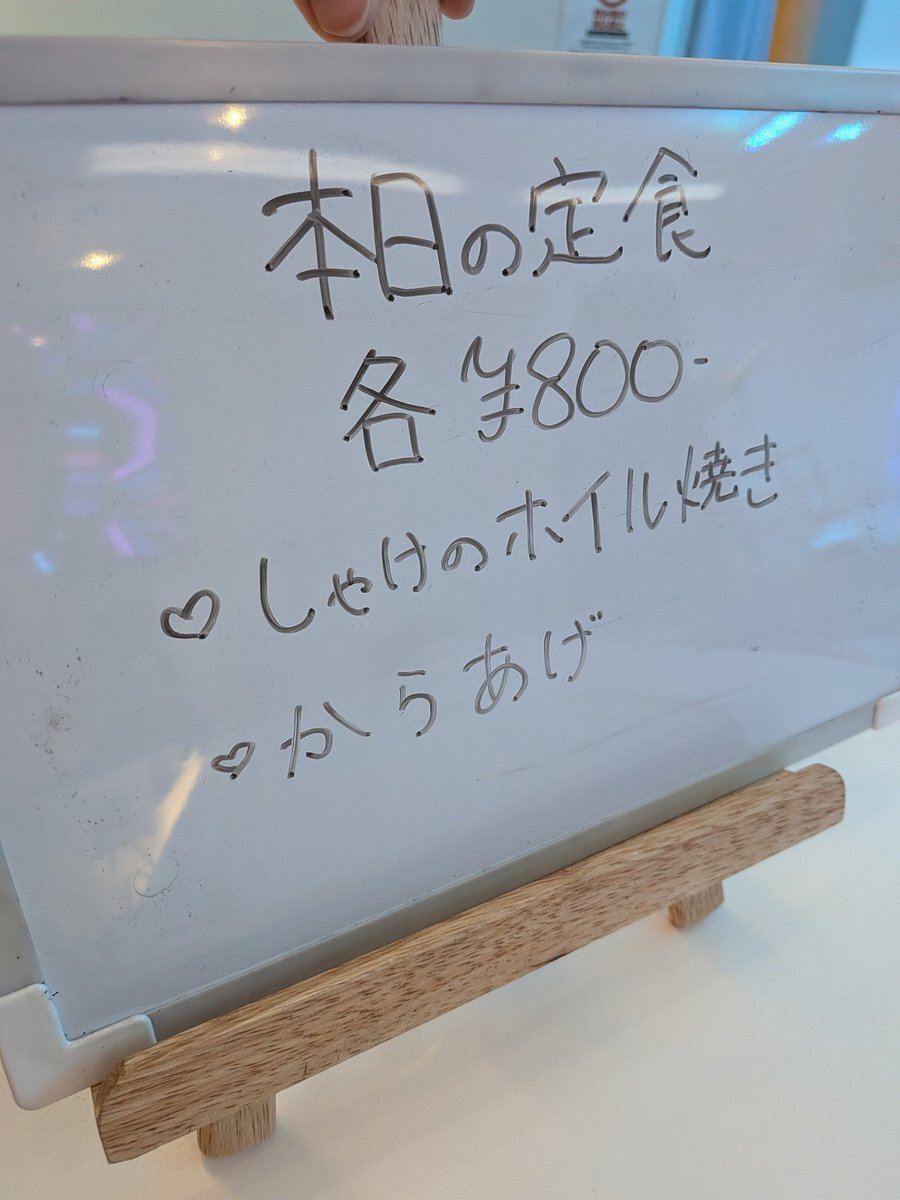 本日の定食
各¥800-
♡しゃけのホイル焼き
♡からあげ